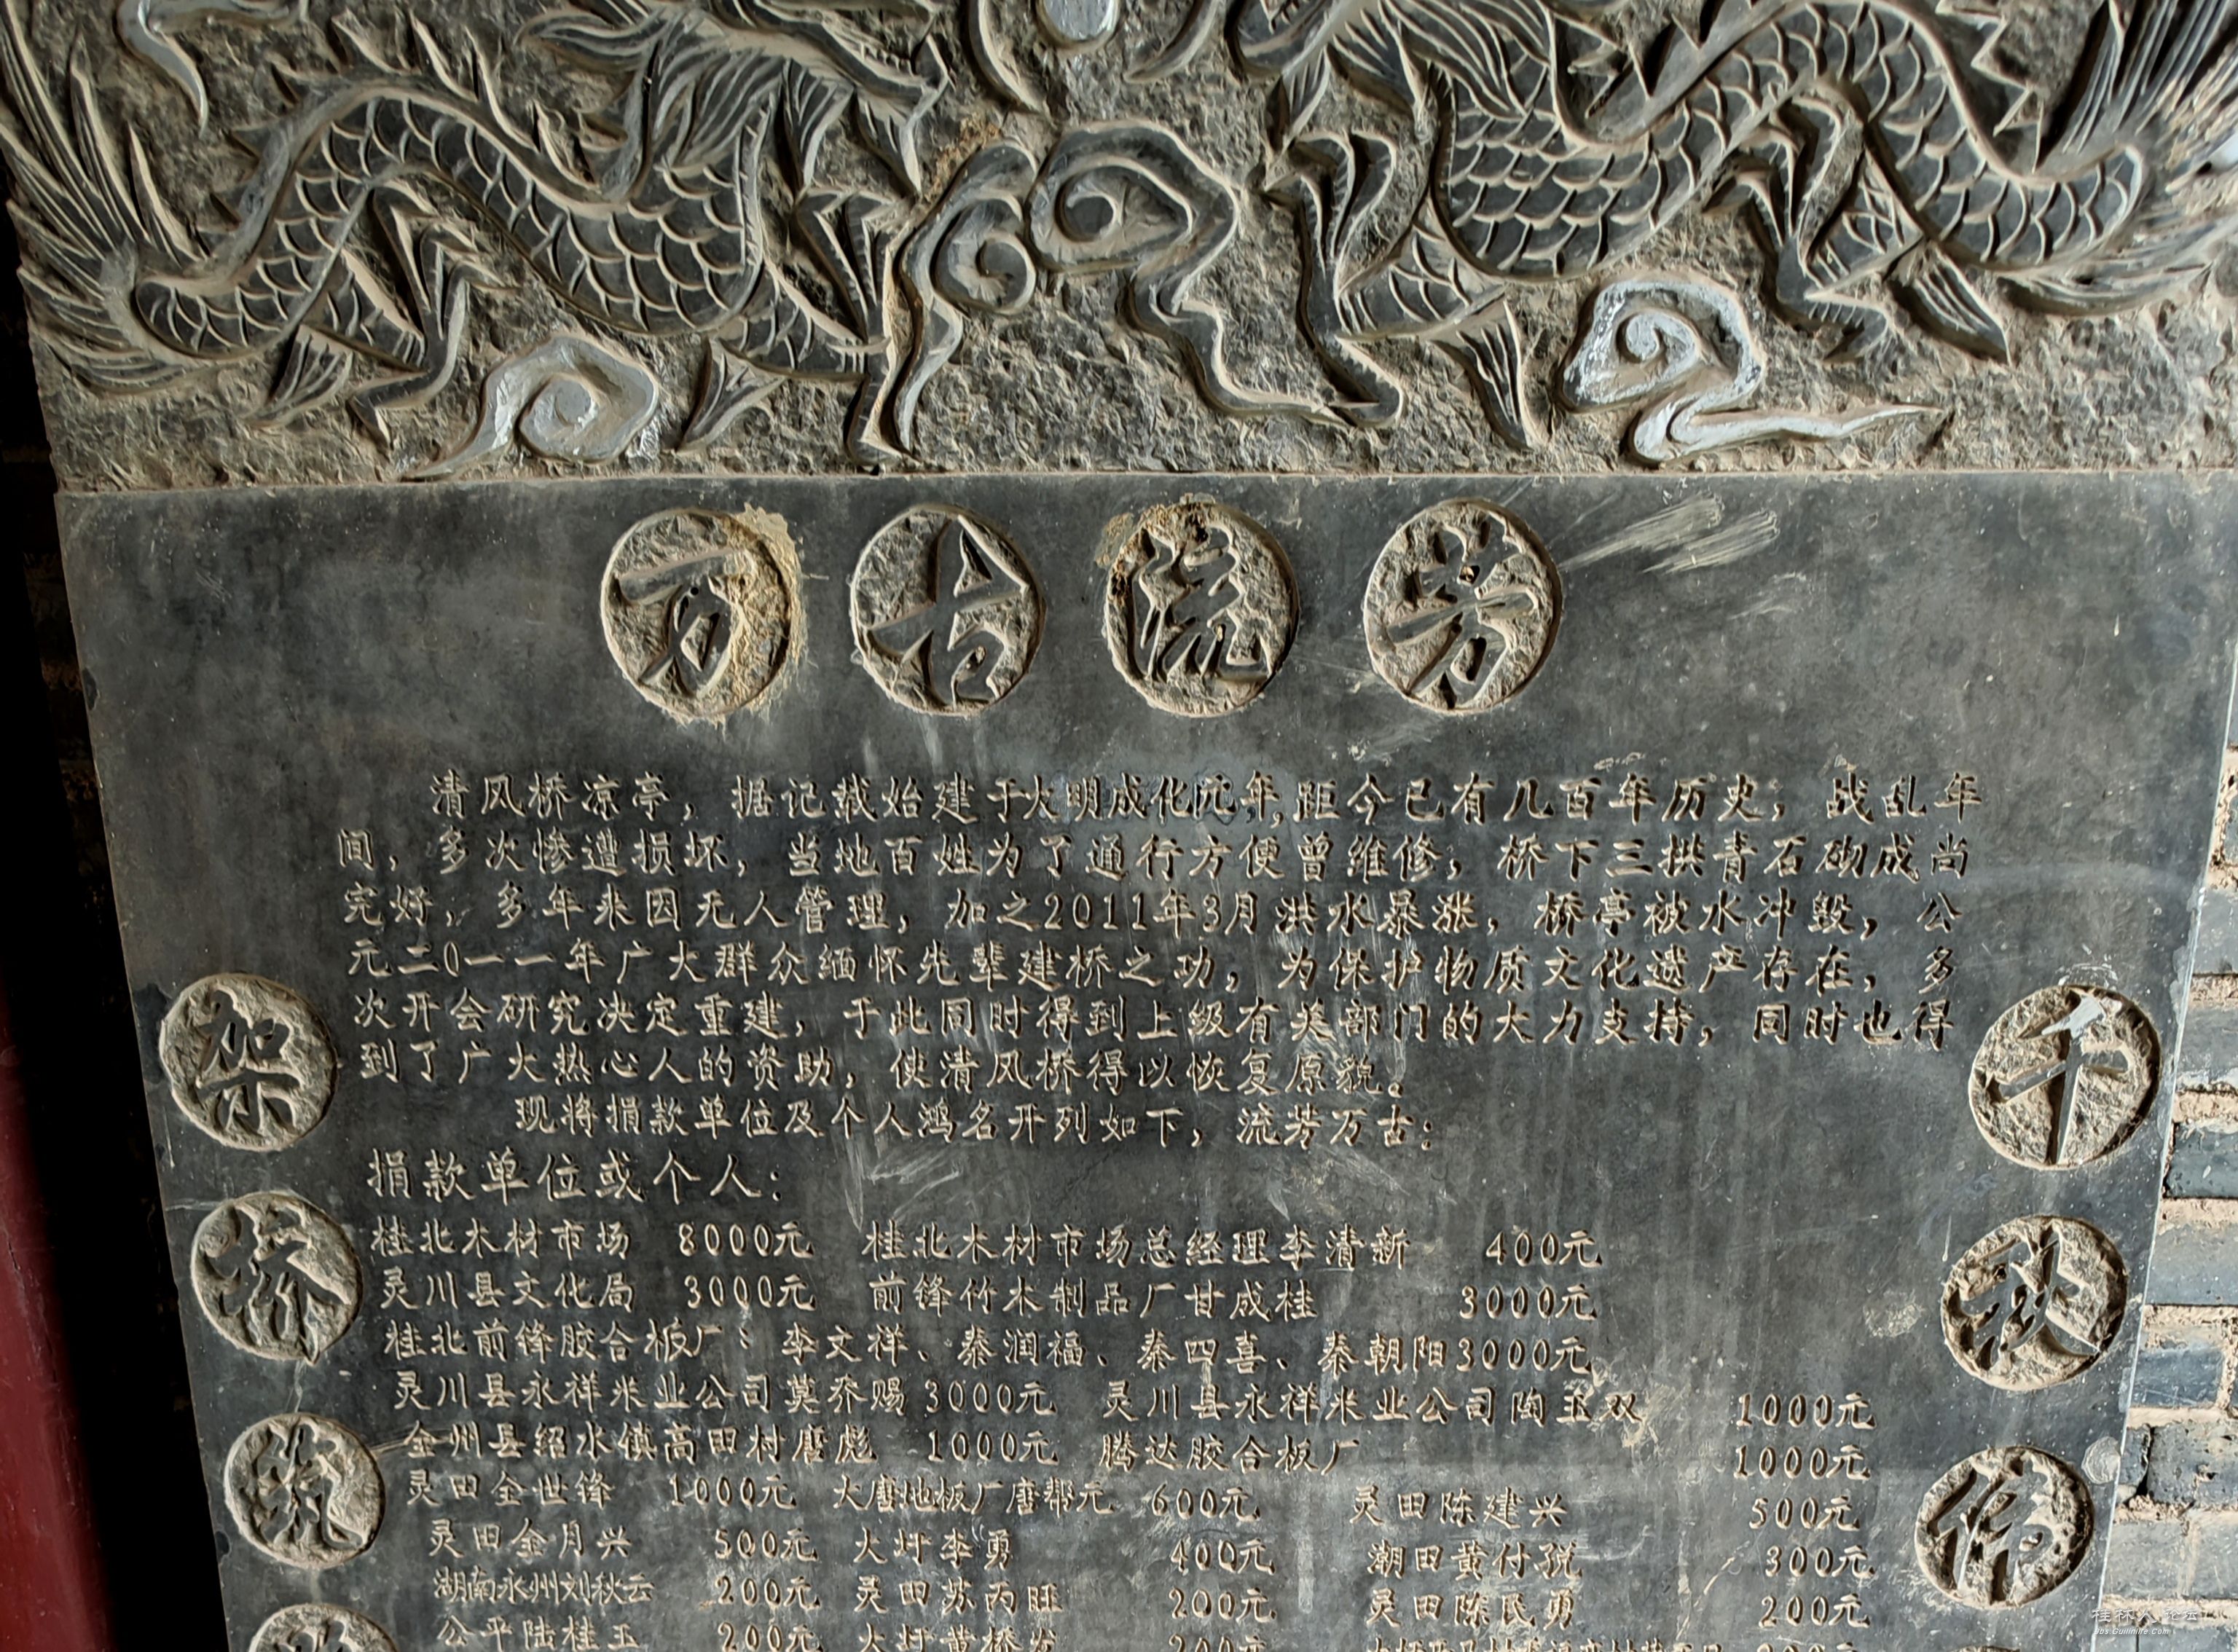 万古流芳
清风桥凉亭，据记载始建于大明成化元年，距今已有几百年历史；战乱年
间，多次惨遭损坏，当地百姓为了通行方便曾维修；桥下三拱青石砌成尚
完好，多年来因无人管理，加之2011年3月洪水暴涨，桥亭被水冲毁，公
元二0一一年广大群众缅怀先辈建桥之功，为保护物质文化遗产存在，多
次开会研究决定重建，于此同时得到上级有关部门的大力支持，同时也得
到了广大热心人的资助，使清风桥得以恢复原貌。
现将捐款单位及个人鸿名开列如下，流芳万古：
捐款单位或个人：
桂北木材市场 8000元 桂北木材市场总经理李清新 400元
灵川县文化局 3000元 前锋竹木制品厂甘成桂 3000元
桂北前锋胶合板厂：李文祥、秦润福、秦四喜、秦朝阳3000元
灵川县永祥米业公司莫乔赐 3000元 灵川县永祥米业公司陶玉双 1000元
全州县绍水镇高田村唐彪 1000元 腾达胶合板厂 1000元
灵田全世锋 1000元 大唐地板厂唐帮元 600元 灵田陈建兴 500元
灵田全月兴 500元 大圩李勇 400元 潮田黄付强 300元
湖南永州刘秋云 200元 灵田苏丙旺 200元 灵田陈民勇 200元
公平陆桂玉 200元 大圩黄桥发 200元
架桥筑
千秋伟
桂林人论坛
bbs.Guilinlife.Com